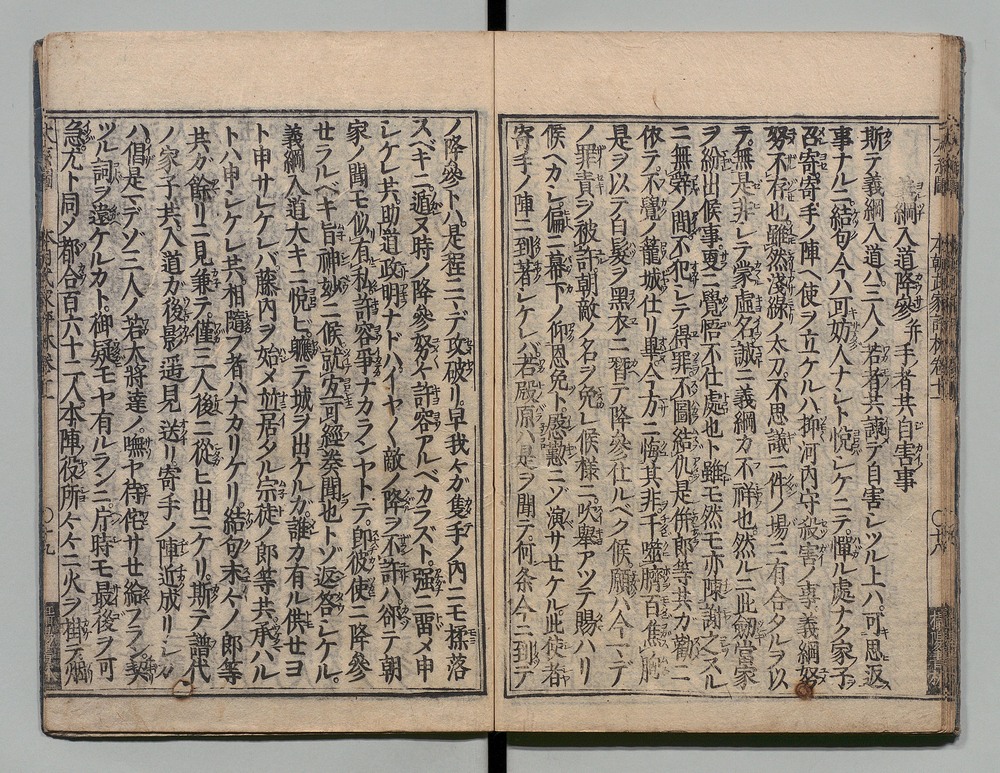 義綱入道降參并手者共自害事
斯テ義綱入道ハ三人ノ若者共議テ自害シツル上ハ可思返
事ナルニ結句今ハ可妨人ナレト悦レケニテ憚ル處ナク家子
召寄寄手ノ陣ヘ使ヲ立ケルハ抑河内守殺害ノ事義綱努
努不存也雖然淺綠ノ太刀不思議ニ件ノ場ニ有合タルヲ以
テ無是非シテ蒙虛名誠ニ義綱カ不祥也然ルニ此劔當家
ヲ紛出候事更ニ覺悟不仕處也ト雖モ然モ亦陳謝之スル
ニ無弊ノ間不犯シテ得罪不圖結仇是併郎等共カ勸ニ
依テ不覺ノ籠城仕リ畢今方ニ悔其非千嗞臍百焦胸
是ヲ以テ白髮ヲ黑衣ニ替テ降參仕ルベク候願ハ今マデ
ノ罪責ヲ被許朝敵ノ名ヲ免レ候樣ニ吹舉アツテ賜ハリ
候ヘカシ偏ニ幕下ノ仰恩免ト慇懃ニゾ演サセケル此使者
寄手ノ陣ニ到著シケレバ若殿原ハ是ヲ聞テ何条今ニ到テ
ノ降參トハ是程ニマデ攻破リ早我々ガ隻手ノ內ニモ揉落
スベキニ遁ヌ時ノ降參努々許容アルベカラズト強ニ留メ申
シケレ共助道政明ナドハイヤ〱敵ノ降ヲ不許ハ却テ朝
家ノ聞モ似有私許容爭ナカランヤトテ卽彼使ニ降參
セラルベキ旨神妙ニ候就夜可經奏聞也トゾ返答シケル
義綱入道大キニ悦ヒ軈テ城ヲ出ケルガ誰カ有ル供セヨ
ト申サレケレバ藤內ヲ始メ並居タル宗徒ノ郎等共承ハル
トハ申シケレ共相隨フ者ハナカリケリ結句末々ノ郎等
共ガ餘リニ見兼テ僅三人後ニ從ヒ出ニケリ斯テ譜代
ノ家子共入道方後影遥見送リ寄手ノ陣近成リシカ
ハ倡是マデゾ三人ノ若大將達ノ嘸ヤ待侘サセ給フラン契
ツル詞ヲ違ケルカト御疑モヤ有ルランニ片時モ最後ヲ可
急尤ト同メ都合百六十二人本陣役所々々ニ火ヲ掛テ烟